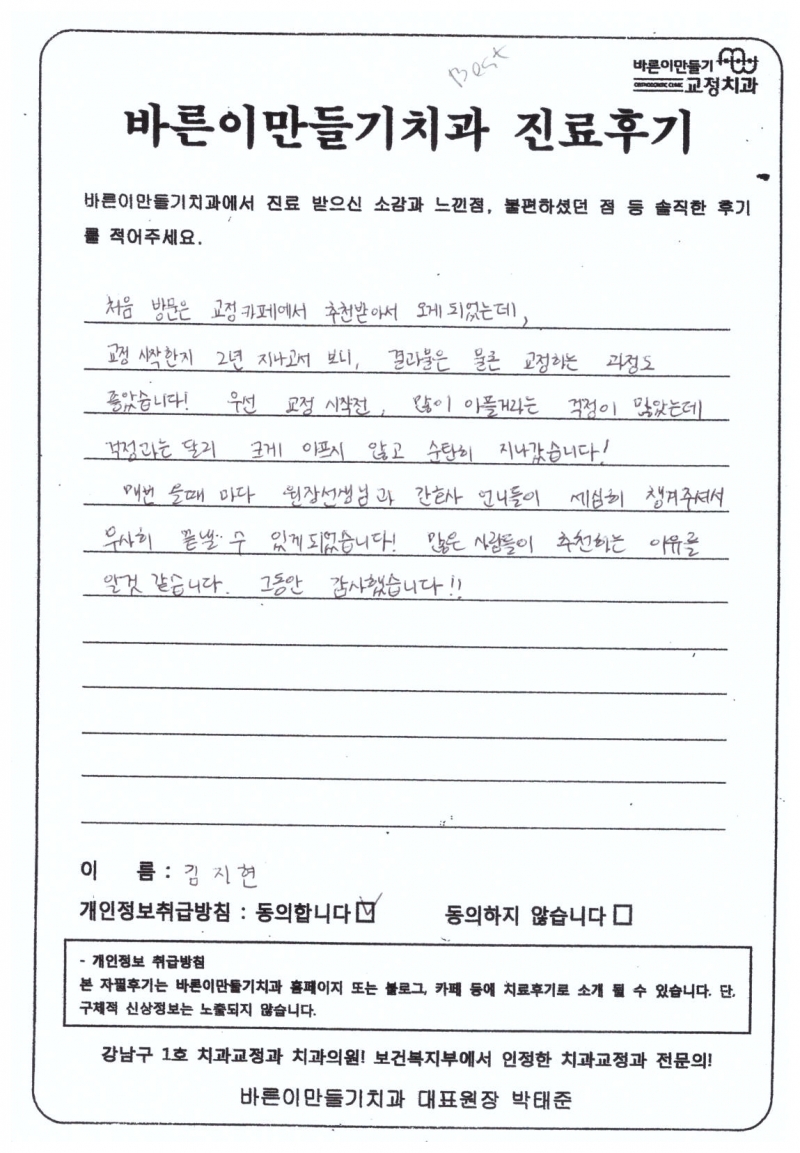 Best
바른이만들기
ORTHODONTIC CLINIC 교정치과
바른이만들기치과 진료후기
바른이만들기치과에서 진료 받으신 소감과 느낀점, 불편하셨던 점 등 솔직한 후기
를 적어주세요.
처음 방문은 교정카페에서 추천받아서 오게되었는데,
교정 시작한지 2년 지나고서 보니, 결과물은 물론 교정하는 과정도
좋았습니다! 우선 교정 시작전, 많이 아플거라는 걱정이 많았는데
걱정과는 달리 크게 아프지 않고 순탄히 지나갔습니다!
매번 올때 마다 원장선생님과 간호사 언니들이 세심히 챙겨주셔서
무사히 끝낼 수 있게되었습니다! 많은 사람들이 추천하는 이유를
알것 같습니다. 그동안 감사했습니다!!
이 름 : 김지현
개인정보취급방침 : 동의합니다 ☑ 동의하지 않습니다 □
- 개인정보 취급방침
본 자필후기는 바른이만들기치과 홈페이지 또는 블로그, 카페 등에 치료후기로 소개 될 수 있습니다. 단,
구체적 신상정보는 노출되지 않습니다.
강남구 1호 치과교정과 치과의원! 보건복지부에서 인정한 치과교정과 전문의!
바른이만들기치과 대표원장 박태준